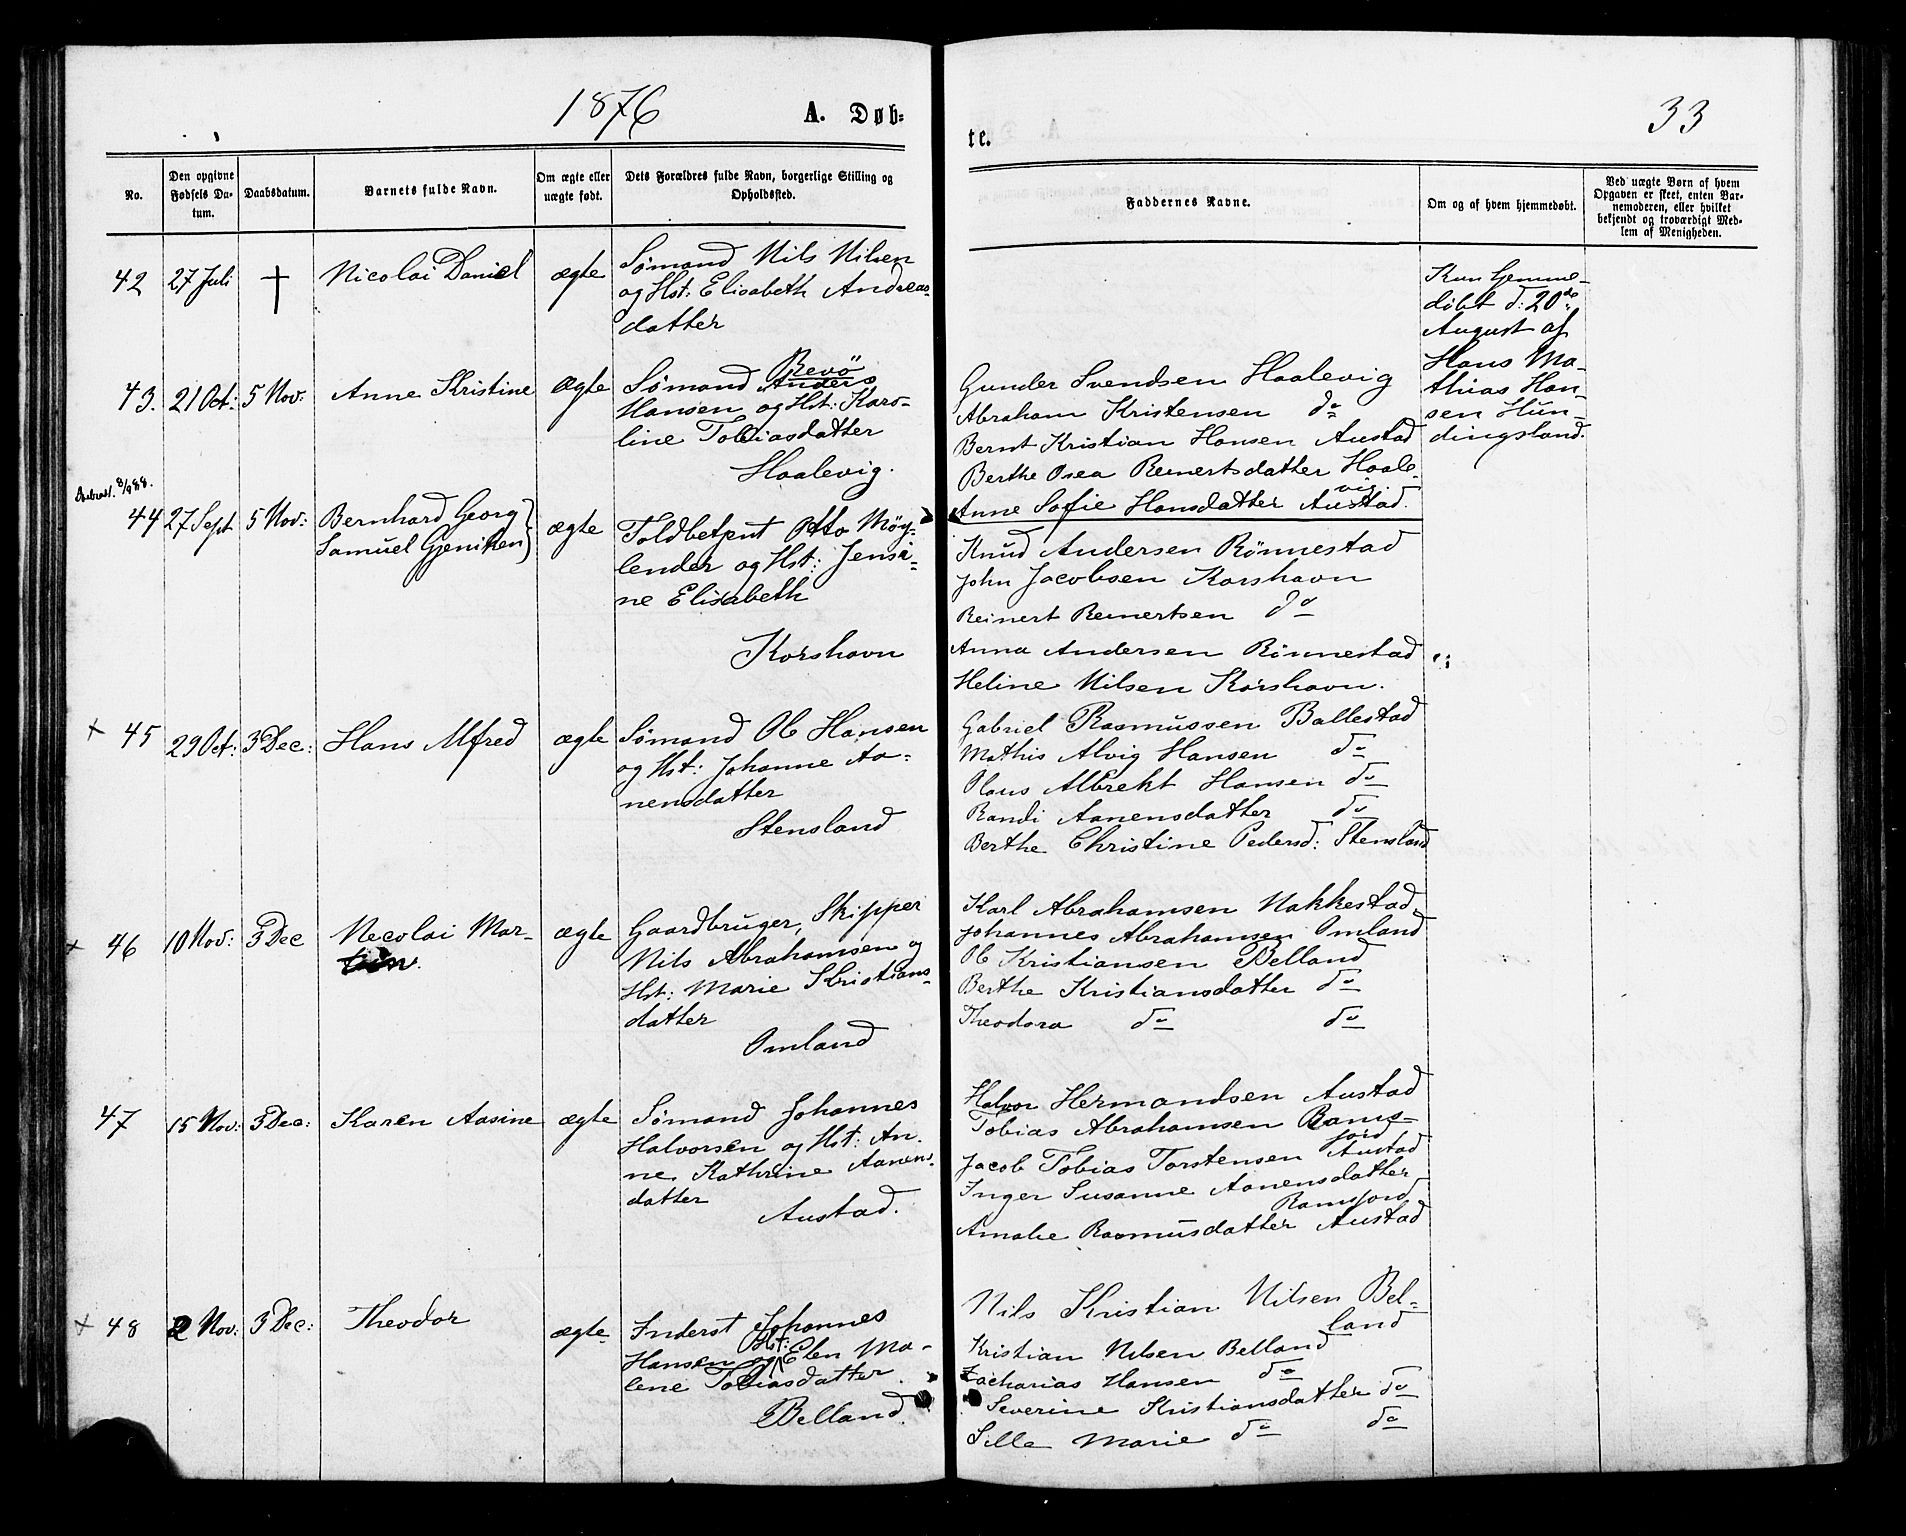 1876
A. Døb=
te.
33
No.
Den opgivne Fødsels Da-tum.
Daabsdatum.
Barnets fulde Navn.
Om ægte eller uægte født.
Dets Forældres fulde Navn, borgerlige Stilling og Opholdssted.
Faddernes Navne.
Om og af hvem hjemmedøbt.
Ved uægte Børn af hvem Opgaven er skeet, enten Bar-nemoderen, eller hvilket bekjendt og troværdigt Med-lem af Menigheden.
42 27 Juli † Nicolai Daniel ægte
Sømand Nils Nilsen
og Hst: Elisabeth Andreas-
datter
Kun hjemme-
døbt d: 20de
August af
Hans Ma-
thias Han-
sen Hun-
dingsland.
43. 21 Oct: 5 Nov: Anne Kristine ægte
Sømand Anders Brevø
Hansen og Hst: Karo-
line Tobiasdatter
Haalevig.
Gunder Svendsen Haalevig
Abraham Kristensen do
Bernt Kristian Hansen Austad
Berthe Osea Reinertsdatter Haale-
vig
Anne Sofie Hansdatter Austad.
8/9 88.
44 27 Sept 5 Nov: Bernhard Georg
Samuel Gjeniken ægte
Toldbetjent Otto Møg-
lender og Hst: Jensi-
ne Elisabeth
Korshavn
Knud Andersen Rönnestad
John Jacobsen Korshavn
Reinert Reinertsen do
Anna Andersen Rönnestad
Heline Nilsen Korshavn.
× 45 29 Oct: 3 Dec: Hans Alfred ægte
Sømand Ol Hansen
og Hst: Johanne Aa-
nensdatter
Stensland
Gabriel Rasmussen Ballestad
Mathis Alvig Hansen do
Hans Albrekt Hansen do
Randi Aanensdatter do
Berthe Christine Pedersd: Stensland
× 46 10 Nov: 3 Dec Necolai Mar-
tin. ægte
Gaardbruger, Skipper
Nils Abrahamsen og
Hst: Marie Kristians-
datter
Omland
Karl Abrahamsen Nakkestad
Johannes Abrahamsen Omland
Ol Kristiansen Belland
Berthe Kristiansdatter do
Theodora do do
47 15 Nov: 3 Dec: Karen Aasine ægte
Sømand Johannes
Halvorsen og Hst: An-
ne Kathrine Aanens-
datter
Austad.
Halvor Hermandsen Austad
Tobias Abrahamsen Rams-
fjord
Jacob Tobias Torstensen Austad
Inger Susanne Aanensdatter
Ramsfjord
Amalie Rasmusdatter Austad
× 48 2 Nov: 3 Dec: Theodor ægte
Inderst Johannes
Hansen og Hst: Elen Ma-
lene Tobiasdatter
Belland.
Nils Kristian Nilsen Bel-
land
Kristian Nilsen Belland
Zacharias Hansen do
Severine Kristiansdatter do
Sille Marie do do